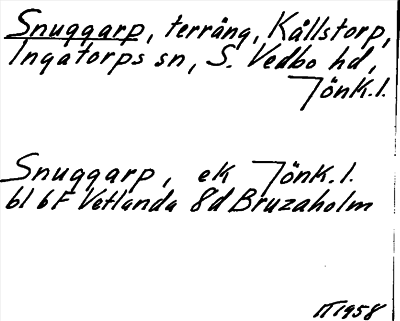 Snuggarp, terräng, Kållstorp,
Ingatorps sn, S. Vedbo hd,
Jönk.l.
Snuggarp, ek Jönk.l.
bl 6F Vetlanda 8d Bruzaholm
IT 1958